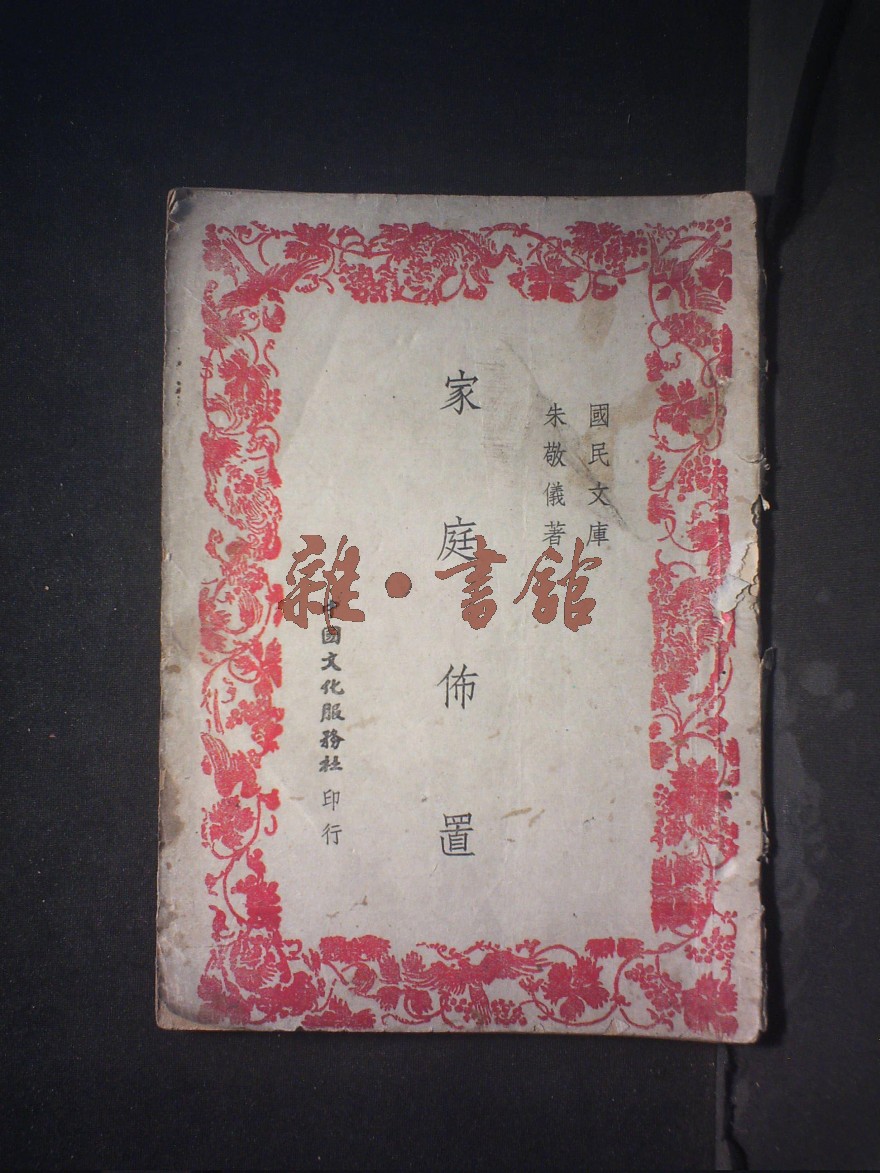 國民文庫
朱敬儀著
家庭佈置
中國文化服務社印行
雜·書館